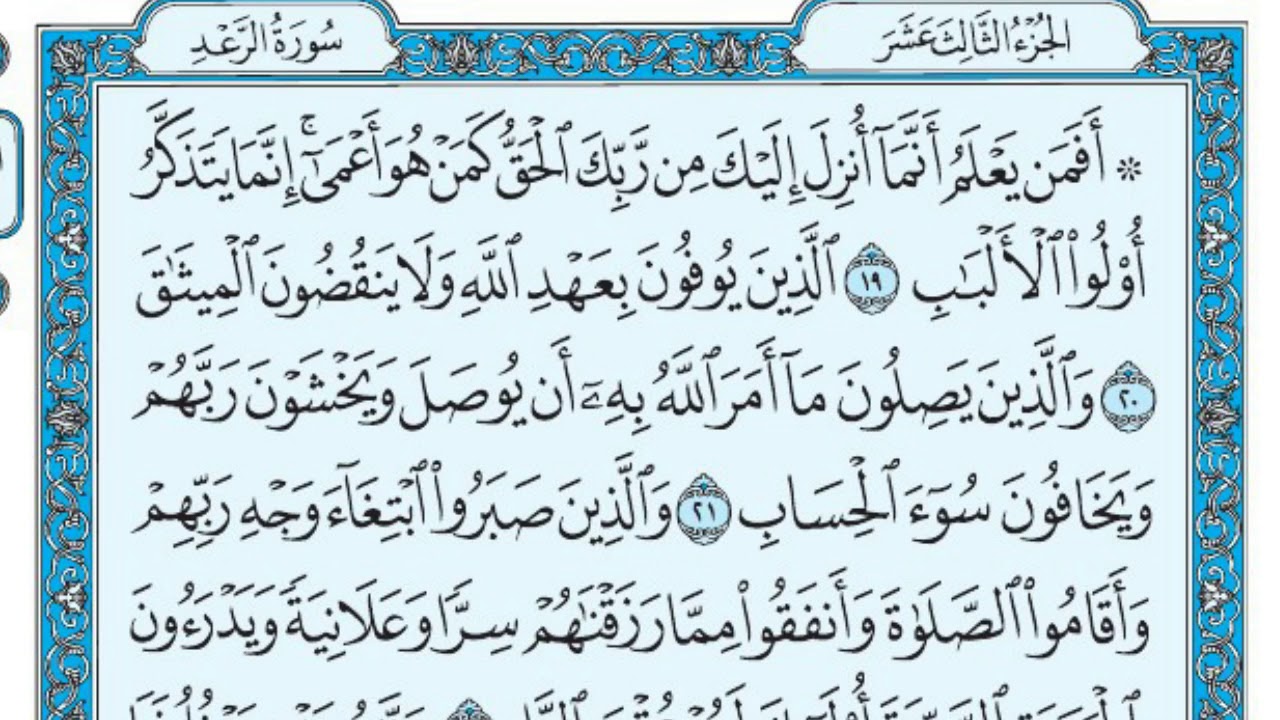 الجُزْءُ الثَّالِثَ عَشَرَ
سُورَةُ الرَّعْدِ
* أَفَمَن يَعْلَمُ أَنَّمَآ أُنزِلَ إِلَيْكَ مِن رَّبِّكَ ٱلْحَقُّ كَمَنْ هُوَ أَعْمَىٰٓ ۚ إِنَّمَا يَتَذَكَّرُ
أُو۟لُوا۟ ٱلْأَلْبَـٰبِ ١٩ ٱلَّذِينَ يُوفُونَ بِعَهْدِ ٱللَّهِ وَلَا يَنقُضُونَ ٱلْمِيثَـٰقَ
٢٠ وَٱلَّذِينَ يَصِلُونَ مَآ أَمَرَ ٱللَّهُ بِهِۦٓ أَن يُوصَلَ وَيَخْشَوْنَ رَبَّهُمْ
وَيَخَافُونَ سُوٓءَ ٱلْحِسَابِ ٢١ وَٱلَّذِينَ صَبَرُوا۟ ٱبْتِغَآءَ وَجْهِ رَبِّهِمْ
وَأَقَامُوا۟ ٱلصَّلَوٰةَ وَأَنفَقُوا۟ مِمَّا رَزَقْنَـٰهُمْ سِرًّا وَعَلَانِيَةً وَيَدْرَءُونَ